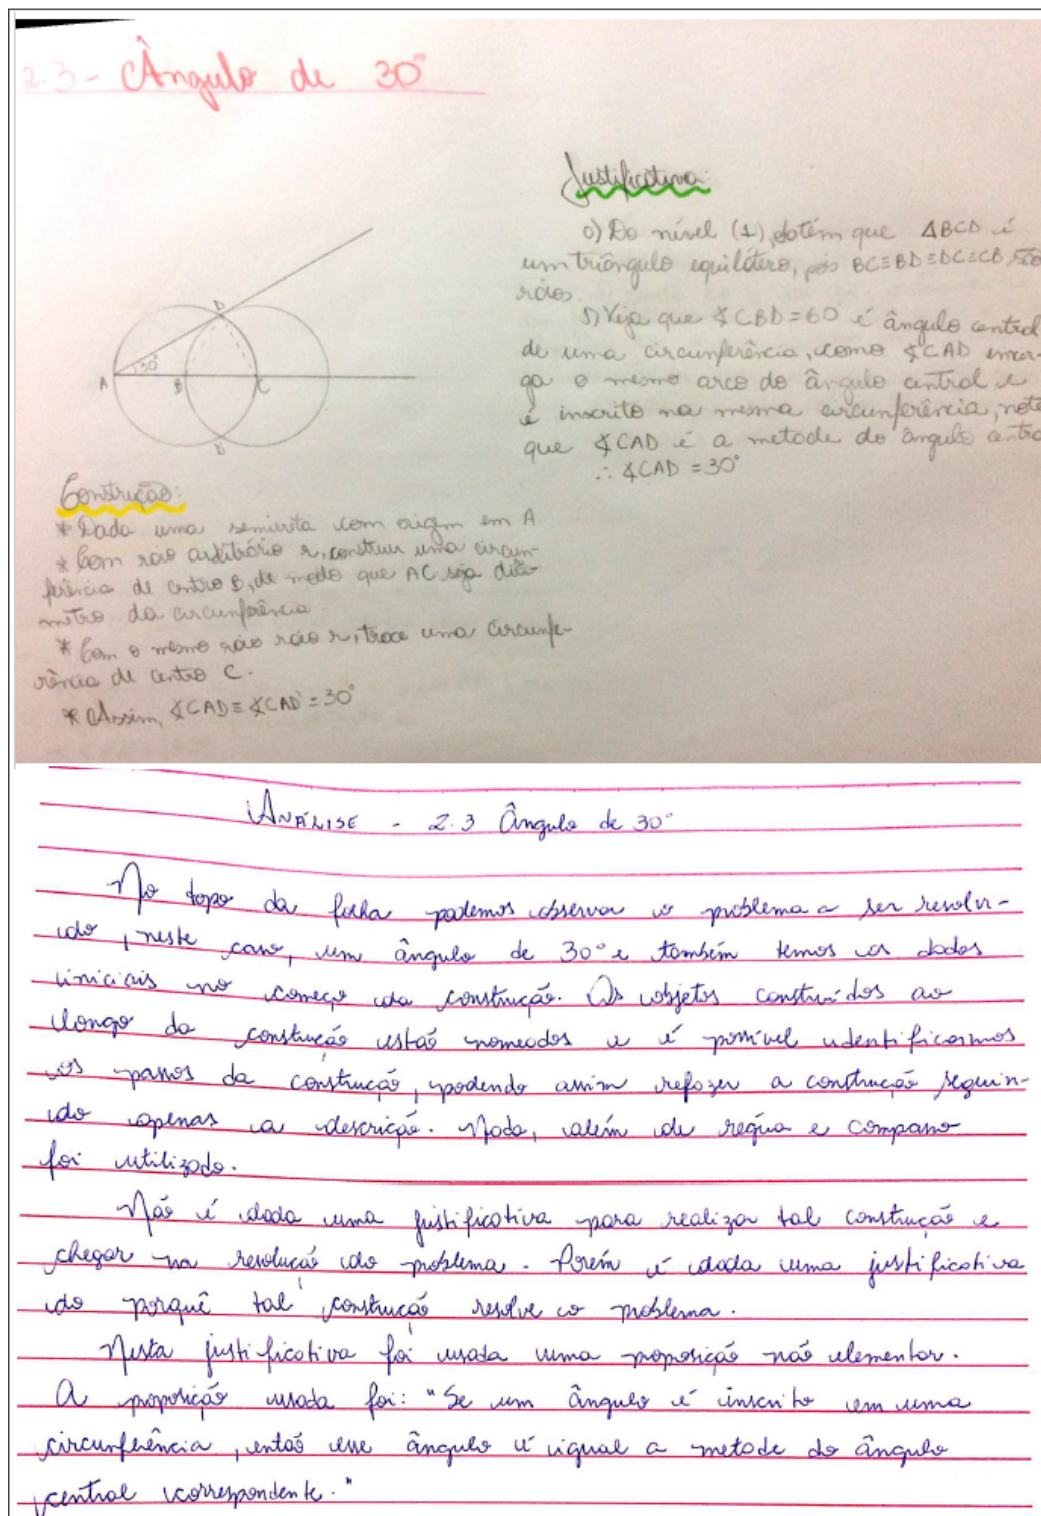 2.3 - Ângulo de 30°
Justificativa:
0) Do nível (1), obtém que ΔBCD é
um triângulo equilátero, pois BC≡BD≡DC≡CB, são
raios.
1) Veja que ∢CBD = 60 é ângulo central
de uma circunferência, como ∢CAD enxer-
ga o mesmo arco do ângulo central e
é inscrito na mesma circunferência, note
que ∢CAD é a metade do ângulo centra
∴ ∢CAD = 30°
D
30°
A
B
C
D'
Construção:
* Dada uma semirreta com origem em A
* Com raio arbitrário r, construir uma circun-
ferência de centro B, de modo que AC seja diâ-
metro da circunferência.
* Com o mesmo raio r, trace uma circunfe-
rência de centro C.
* Assim, ∢CAD ≡ ∢CAD' = 30°
ANÁLISE - 2.3 Ângulo de 30°
No topo da folha podemos observar o problema a ser resolvi-
do, neste caso, um ângulo de 30° e também temos os dados
iniciais no começo da construção. Os objetos construídos ao
longo da construção estão nomeados e é possível identificarmos
os passos da construção, podendo assim refazer a construção seguin-
do apenas a descrição. Nada, além de régua e compasso
foi utilizado.
Não é dada uma justificativa para realizar tal construção e
chegar na resolução do problema. Porém é dada uma justificativa
do porquê tal construção resolve o problema.
Nesta justificativa foi usada uma proposição não elementar.
A proposição usada foi: "Se um ângulo é inscrito em uma
circunferência, então esse ângulo é igual a metade do ângulo
central correspondente."